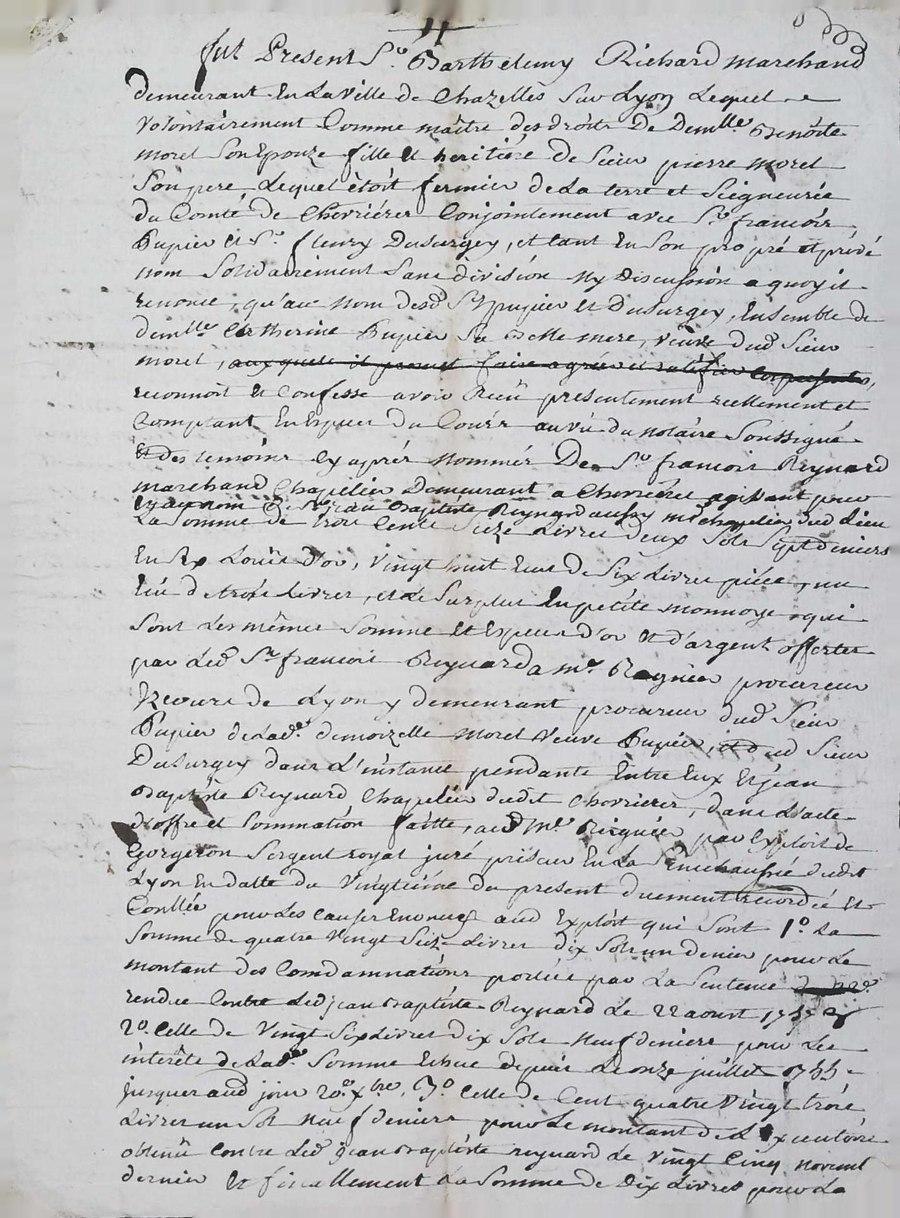 fut Present Sr. Barthelemy Richard marchand
demeurant En La Ville de Chazelles Sur Lyon Lequel
Volontairement Comme maître des droits De Demlle Benoite
morel Son Epouze fille et heritière de Sieur pierre morel
Son pere Lequel étoit fermier de La terre et Seigneurie
du Comté de Chevriérer Conjointement avec Sr francois
Pupier et Sr. fleury Dusurgey, et tant En Son propre et privé
nom Solidairement Sans division Ny Discussion a quoy il
renonce, qu'au nom desd Srs pupier et Dusurgey, Ensemble de
demlle Catherine Pupier Sa belle mere, veuve dud Sieur
morel, aux quels il promet faire agréer et ratifier Ces presentes,
reconnoit et Confesse avoir Reçu presentement reellement et
Comptant En Especes du Cours au vû du notaire Soussigné
et des temoins Cy aprés nommés De Sr francois Reynard
marchand Chapelier Demeurant a Chevriérer agissant pour
et au nom de Sr jean Baptiste Reynard aussy md chapelier dud Lieu
La Somme de trois Cents Seize Livres deux Sols Sept deniers
En Six Louis d'or, vingt huit Ecus de Six Livres piéce, un
Ecu de trois Livres, et Le Surplus En petite monnoye qui
Sont Les mêmes Somme et Especes d'or et d'argent offertes
par Led Sr francois Reynard a me Rognier procureur
Es cours de Lyon y demeurant procureur dud Sieur
Pupier de Lade. demoizelle morel veuve Pupier, et dud Sieur
Dusurgey dans L'instance pendante Entre Eux et jean
Baptiste Reynard Chapelier dudit Chevriérer, dans L'acte
d'offre et Sommation faitte, aud Me. Rognier par Exploit de
Gorgeron Sergent royal juré priseur En La Sénéchaussée dudit
Lyon En datte du Vingtième du present duement recordée et
Conllée pour Les Causes Enoncés aud Exploit qui Sont 1o. La
Somme de quatre Vingt Seize Livres dix Sols un denier pour Le
montant des Comdamnations portées par La Sentence
rendue Contre Led jean Baptiste Reynard Le 22 aoust 1758
2o. Celle de Vingt Six Livres dix Sols Neuf deniers pour Les
interêts de Lade Somme Echus depuis Le onze juillet 1755
jusques aud jour 20e. xbre, 3o. Celle de Cent quatre Vingt trois
Livres un Sol Neuf deniers pour Le montant de L'Executoire
obtenû Contre Led jean Baptiste reynard Le Vingt Cinq novembre
dernier et finallement La Somme de Dix Livres pour La